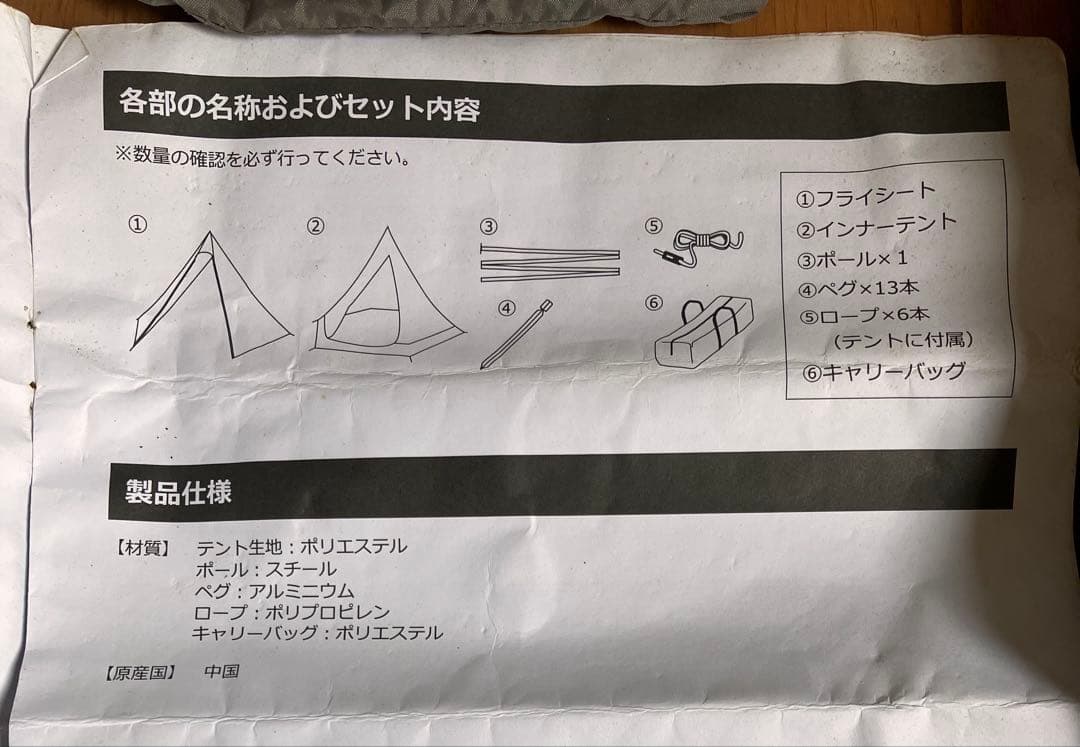 各部の名称およびセット内容
※数量の確認を必ず行ってください。
①
②
③
④
⑤
⑥
①フライシート
②インナーテント
③ポール×1
④ペグ×13本
⑤ロープ×6本
（テントに付属）
⑥キャリーバッグ
製品仕様
【材質】 テント生地：ポリエステル
ポール：スチール
ペグ：アルミニウム
ロープ：ポリプロピレン
キャリーバッグ：ポリエステル
【原産国】 中国